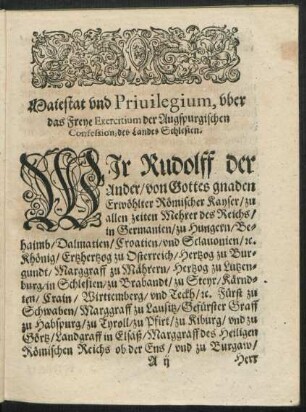 Maiestat vnd Priuilegium, vber
das Freye Exercitium der Augspurgischen
Confession, des Landes Schlesien.
WIr Rudolff der
Ander/ von Gottes gnaden
Erwöhlter Römischer Kayser/ zu
allen zeiten Mehrer des Reichs/
in Germanien/ zu Hungern/ Be-
haimb/ Dalmatien/ Croatien/ vnd Sclauonien/ ꝛc.
Khönig/ Ertzhertzog zu Osterreich/ Hertzog zu Bur-
gundt/ Marggraff zu Mährern/ Hertzog zu Lützen-
burg/ in Schlesien/ zu Brabandt/ zu Steyr/ Kärnd-
ten/ Crain/ Wirttemberg/ vnd Teckh/ ꝛc. Fürst zu
Schwaben/ Marggraff zu Lausitz/ Gefürster Graff
zu Habspurg/ zu Tyroll/ zu Pfirt/ zu Kiburg/ vnd zu
Görtz/ Landgraff in Elsaß/ Marggraff des Heiligen
Römischen Reichs ob der Ens/ vnd zu Burgaw/
A ij Herr